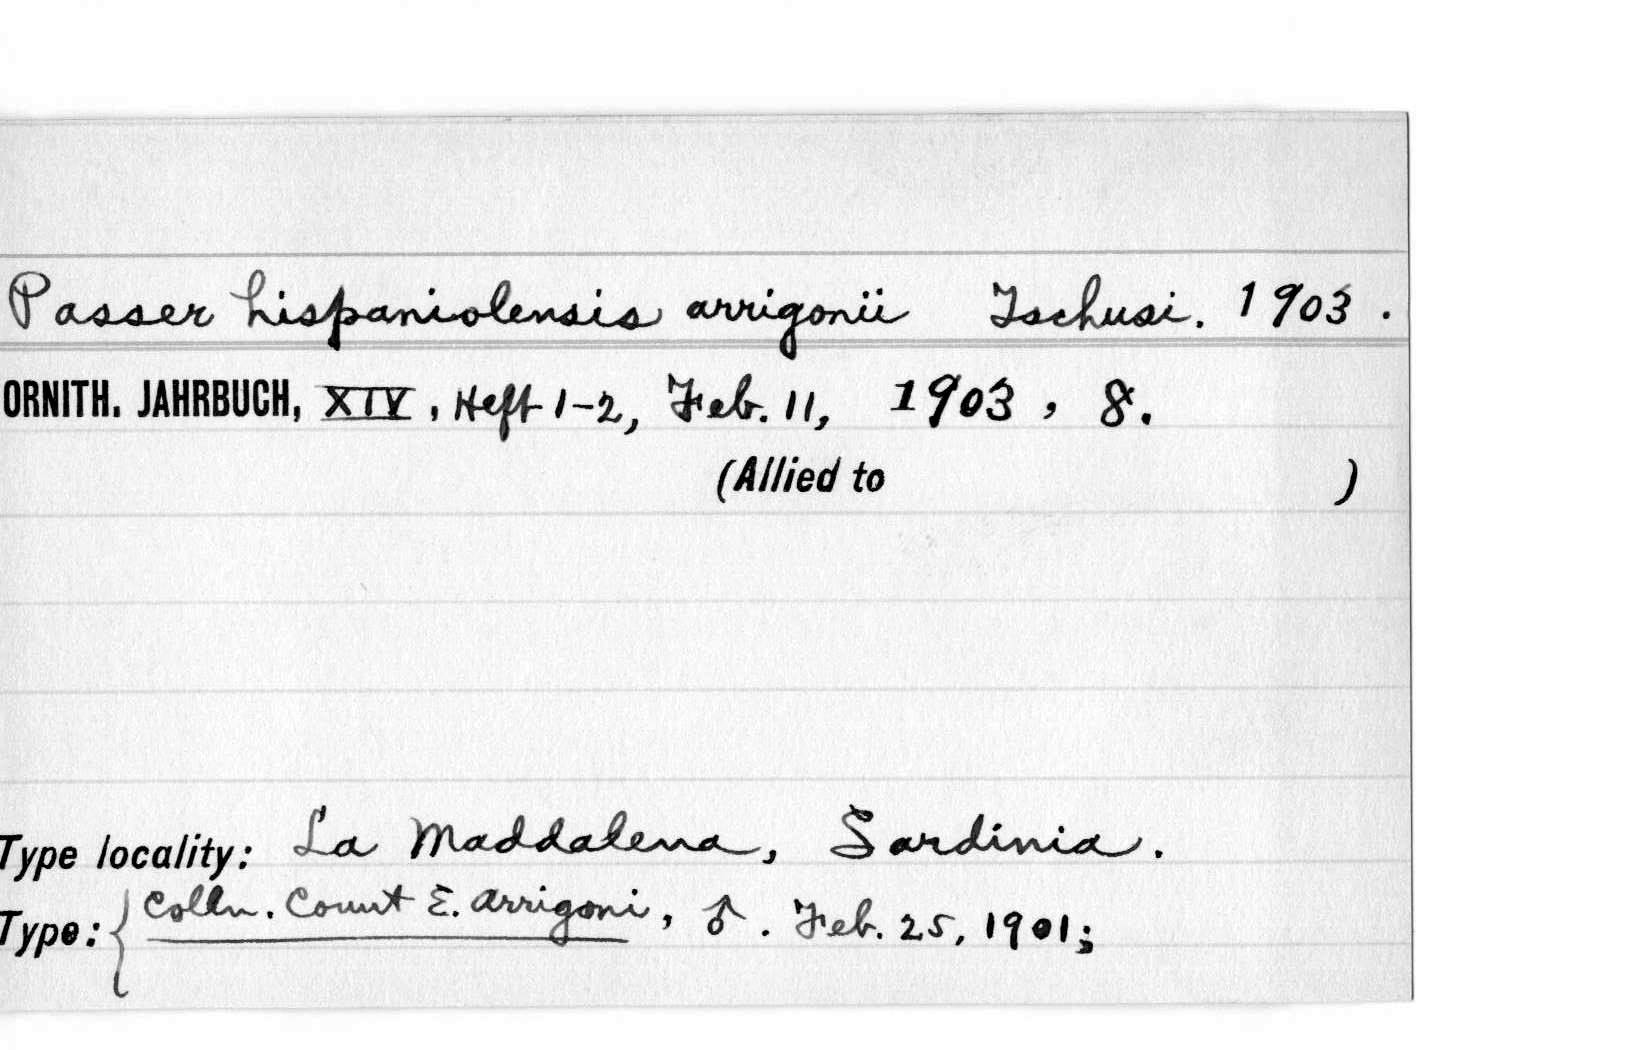 Passer hispaniolensis arrigonii Tschusi. 1903.
ORNITH. JAHRBUCH, XIV, Heft 1-2, Feb. 11, 1903, 8.
(Allied to )
Type locality: La Maddalena, Sardinia.
Type: { Colln. Count E. Arrigoni, ♂. Feb. 25, 1901;